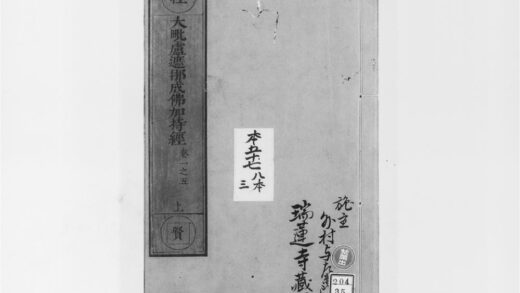 施主
外村与
瑞蓮寺藏
204
35
本五十七
八本
三
大毗盧遮那成佛加持經
卷一之五
上
賢